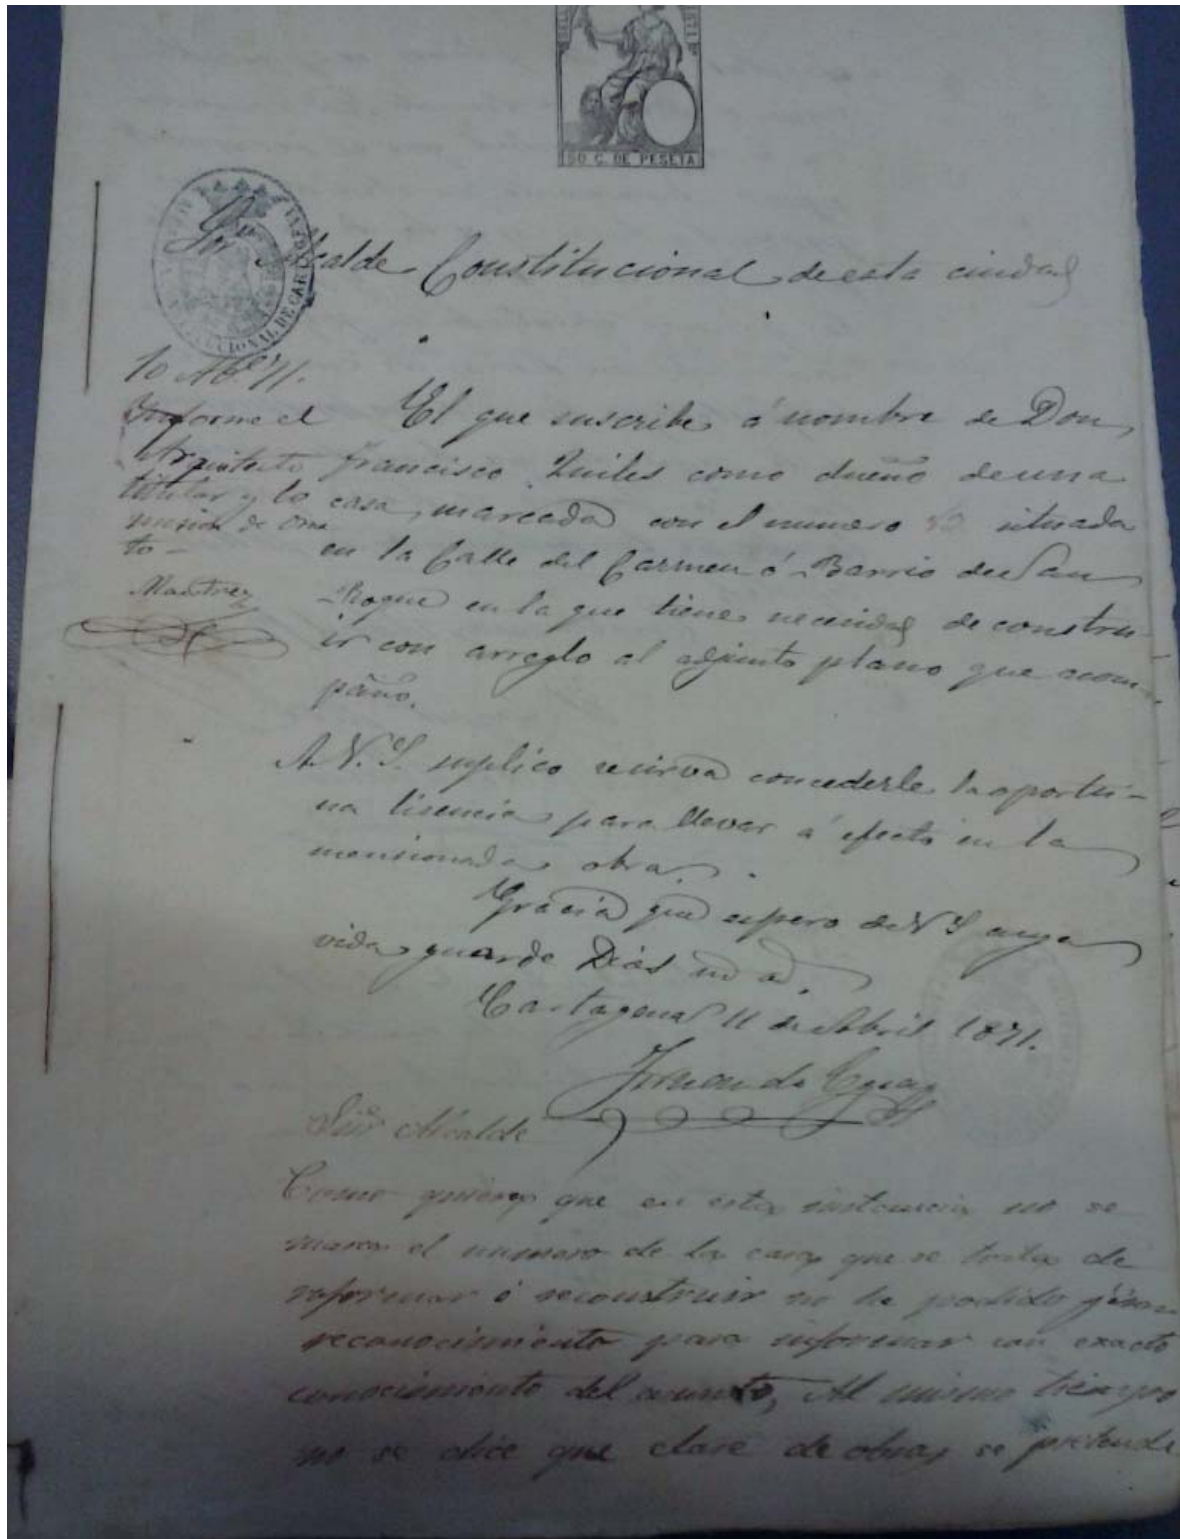 50 C. DE PESETA
Sor Alcalde Constitucional de esta ciudad
CIONAL DE CARTAGENA
10 Abl 71.
Informe el
Arquitecto
titular y la
mision de Orna
to -
El que suscribe á nombre de Don
Francisco Quiles como dueño de una
casa, marcada con el numero situada
en la Calle del Carmen ó Barrio de San
Roque en la que tiene necesidad de constru-
ir con arreglo al adjunto plano que acom-
paño.
A V. S. suplico se sirva concederle la oportu-
na lisencia para llevar á efecto en la
mensionada obra.
Gracia que espero de V S cuya
vida guarde Dios
Cartagena 11 de Abril 1871.
Fernando
Sor Alcalde
Como quiera que en esta instancia no se
marca el numero de la casa que se trata de
reformar ó reconstruir no he podido
reconocimiento para informar con exacto
conocimiento del asunto, Al mismo tiempo
no se dice que clase de obras se pretende